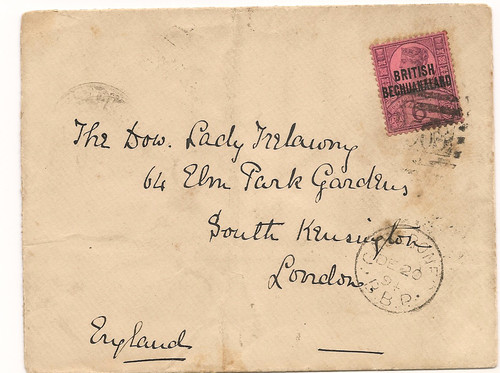 BRITISH
BECHUANALAND
The Dow. Lady Trelawny
64 Elm Park Gardens
South Kensington
London
England
DE 20
94
B.B.P.